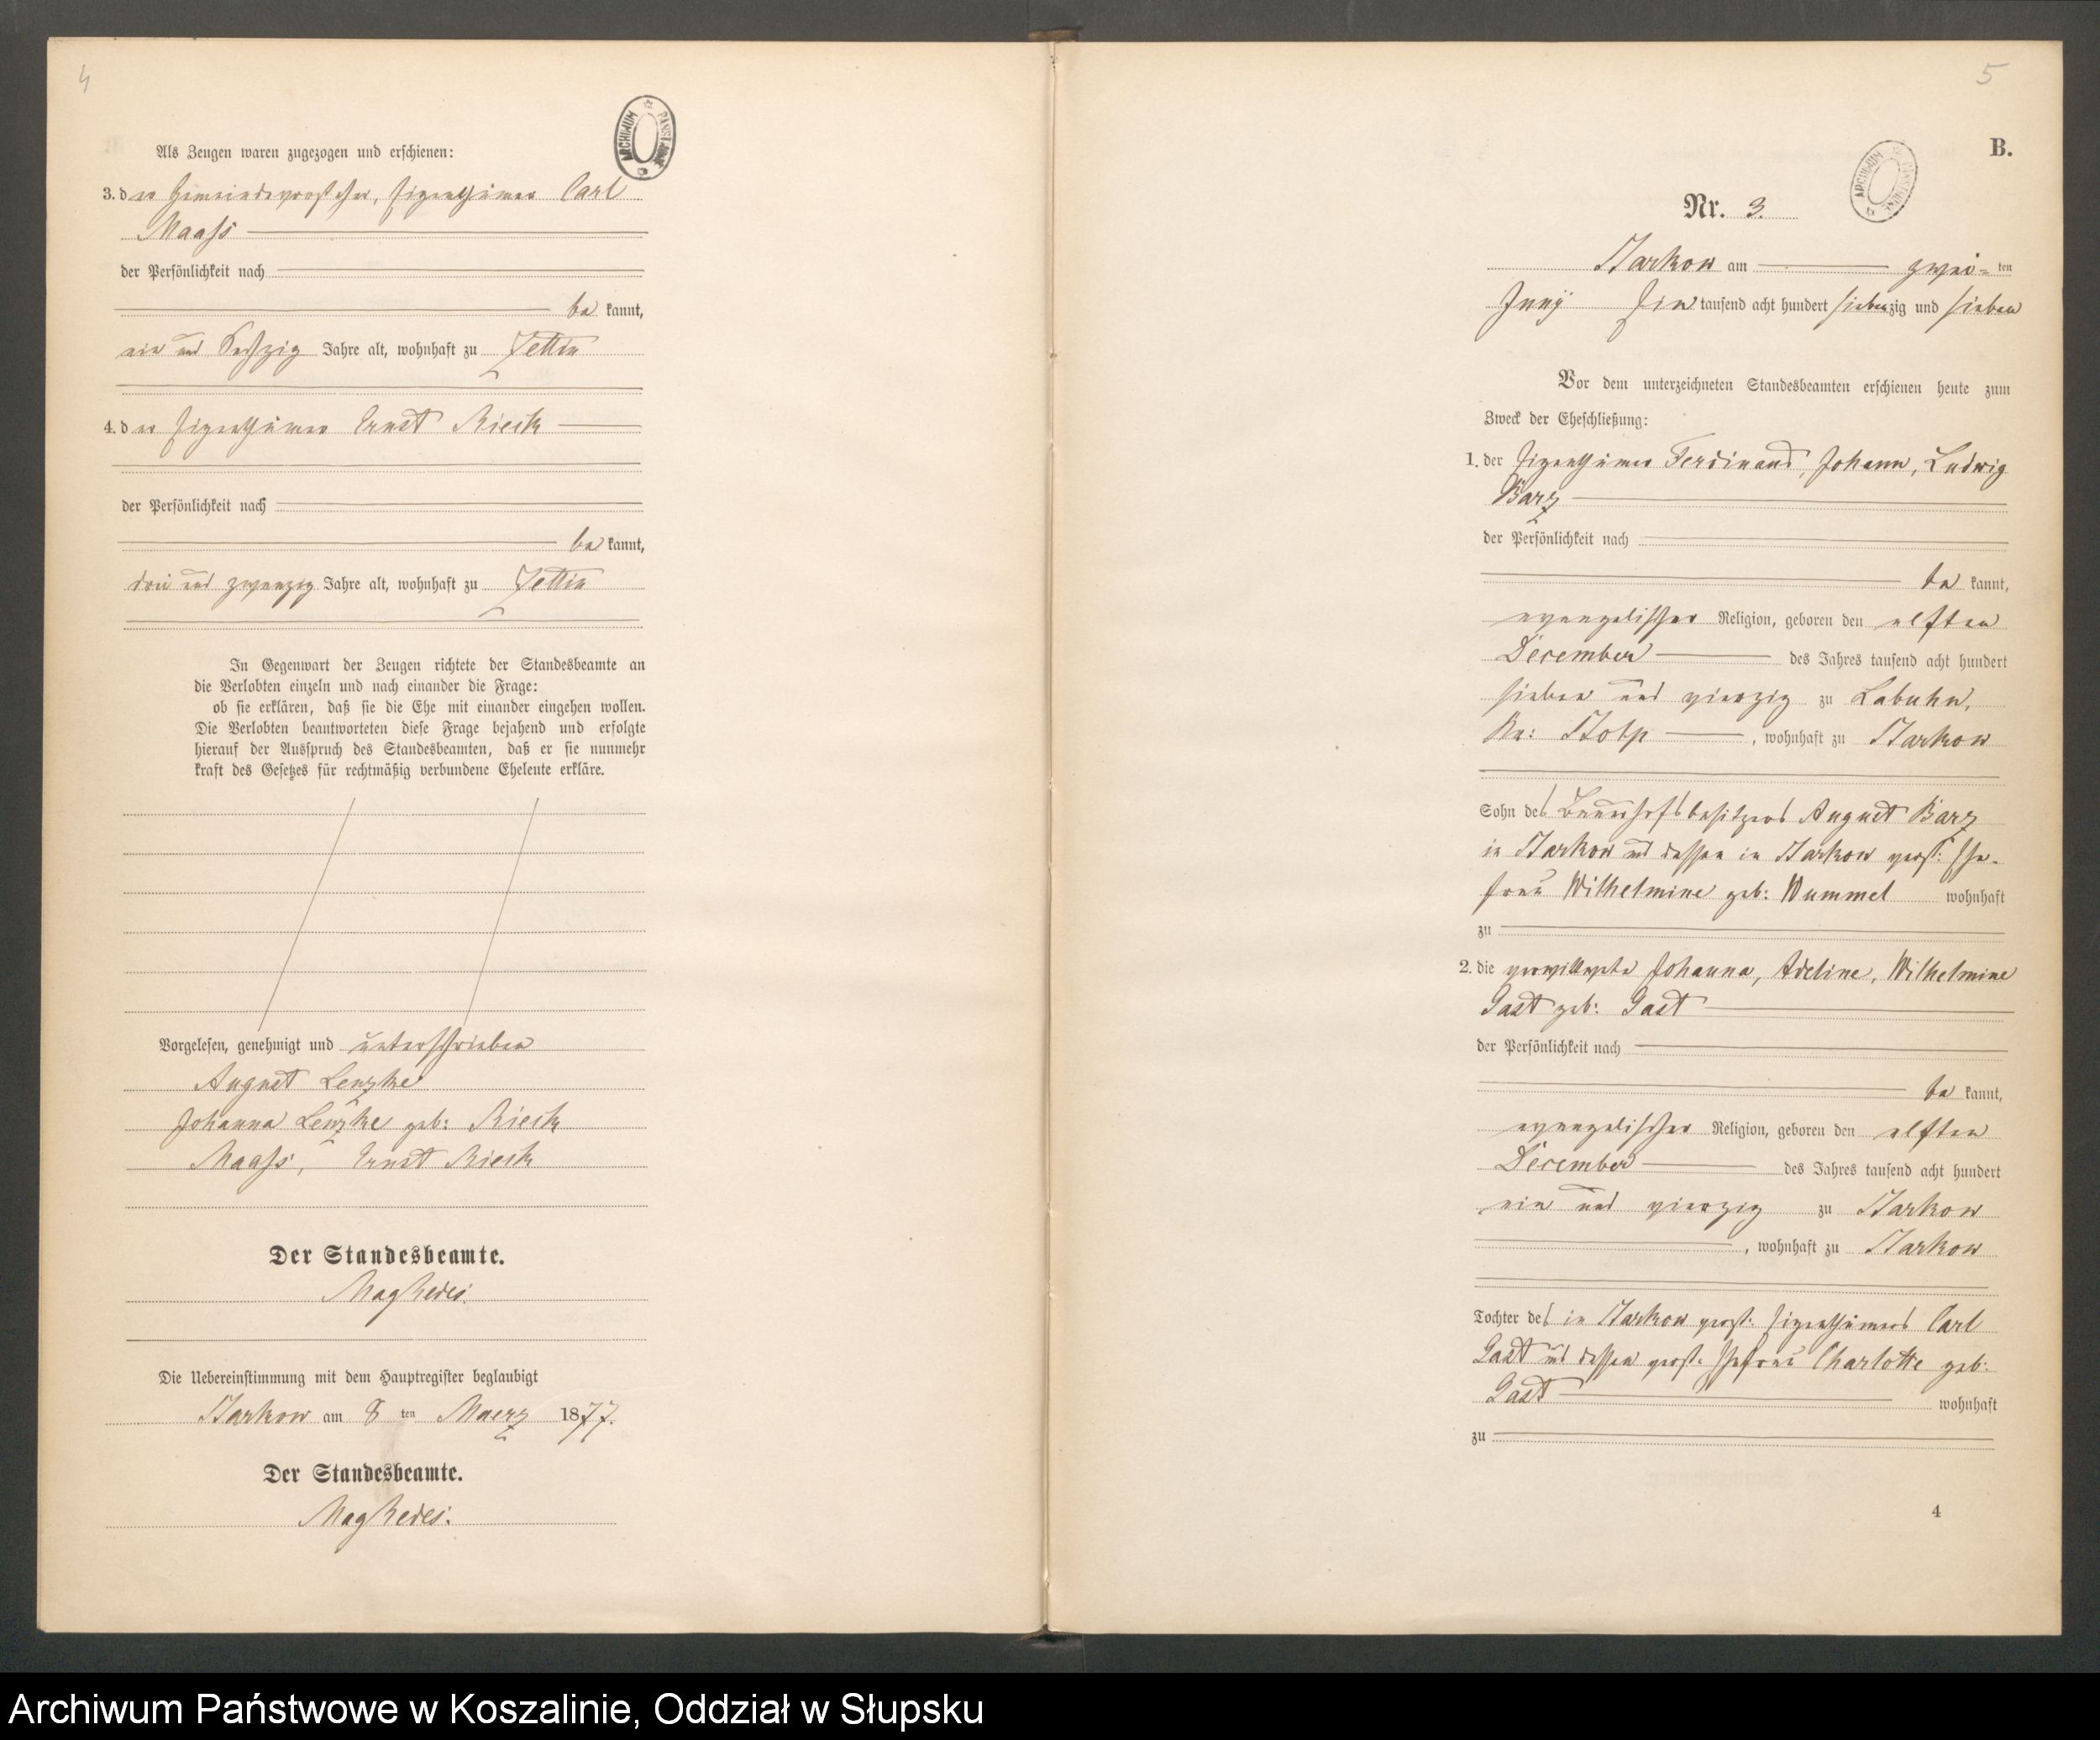 4
Als Zeugen waren zugezogen und erschienen:
ARCHIWUM PAŃSTWOWE
3. der Gemeindevorsteher, Eigenthümer Carl
Maaß
der Persönlichkeit nach
bekannt,
ein und Sechzig Jahre alt, wohnhaft zu Zettin
4. der Eigenthümer Ernst Rieck
der Persönlichkeit nach
bekannt,
drei und zwanzig Jahre alt, wohnhaft zu Zettin
In Gegenwart der Zeugen richtete der Standesbeamte an
die Verlobten einzeln und nach einander die Frage:
ob sie erklären, daß sie die Ehe mit einander eingehen wollen.
Die Verlobten beantworteten diese Frage bejahend und erfolgte
hierauf der Ausspruch des Standesbeamten, daß er sie nunmehr
kraft des Gesetzes für rechtmäßig verbundene Eheleute erkläre.
Vorgelesen, genehmigt und unterschrieben
August Lenzke
Johanna Lenzke geb: Rieck
Maaß, Ernst Rieck
Der Standesbeamte.
Die Uebereinstimmung mit dem Hauptregister beglaubigt
Starkow am 8 ten Maerz 1877.
Der Standesbeamte.
5
B.
ARCHIWUM PAŃSTWOWE
Nr. 3.
Starkow am zwei=ten
Juny Ein tausend acht hundert siebenzig und sieben
Vor dem unterzeichneten Standesbeamten erschienen heute zum
Zweck der Eheschließung:
1. der Eigenthümer Ferdinand, Johann, Ludwig
Barz
der Persönlichkeit nach
bekannt,
evangelischer Religion, geboren den elften
December des Jahres tausend acht hundert
sieben und vierzig zu Labuhn,
Kr: Stolp, wohnhaft zu Starkow
Sohn des Bauerhofsbesitzers August Barz
in Starkow und dessen in Starkow verst: Ehe-
frau Wilhelmine geb: Wummel wohnhaft
zu
2. die verwittwete Johanna, Adeline, Wilhelmine
Gast geb: Gast
der Persönlichkeit nach
bekannt,
evangelischer Religion, geboren den elften
December des Jahres tausend acht hundert
ein und vierzig zu Starkow
, wohnhaft zu Starkow
Tochter des in Starkow verst: Eigenthümers Carl
Gast und dessen verst. Ehefrau Charlotte geb:
Gast wohnhaft
zu
4
Archiwum Państwowe w Koszalinie, Oddział w Słupsku